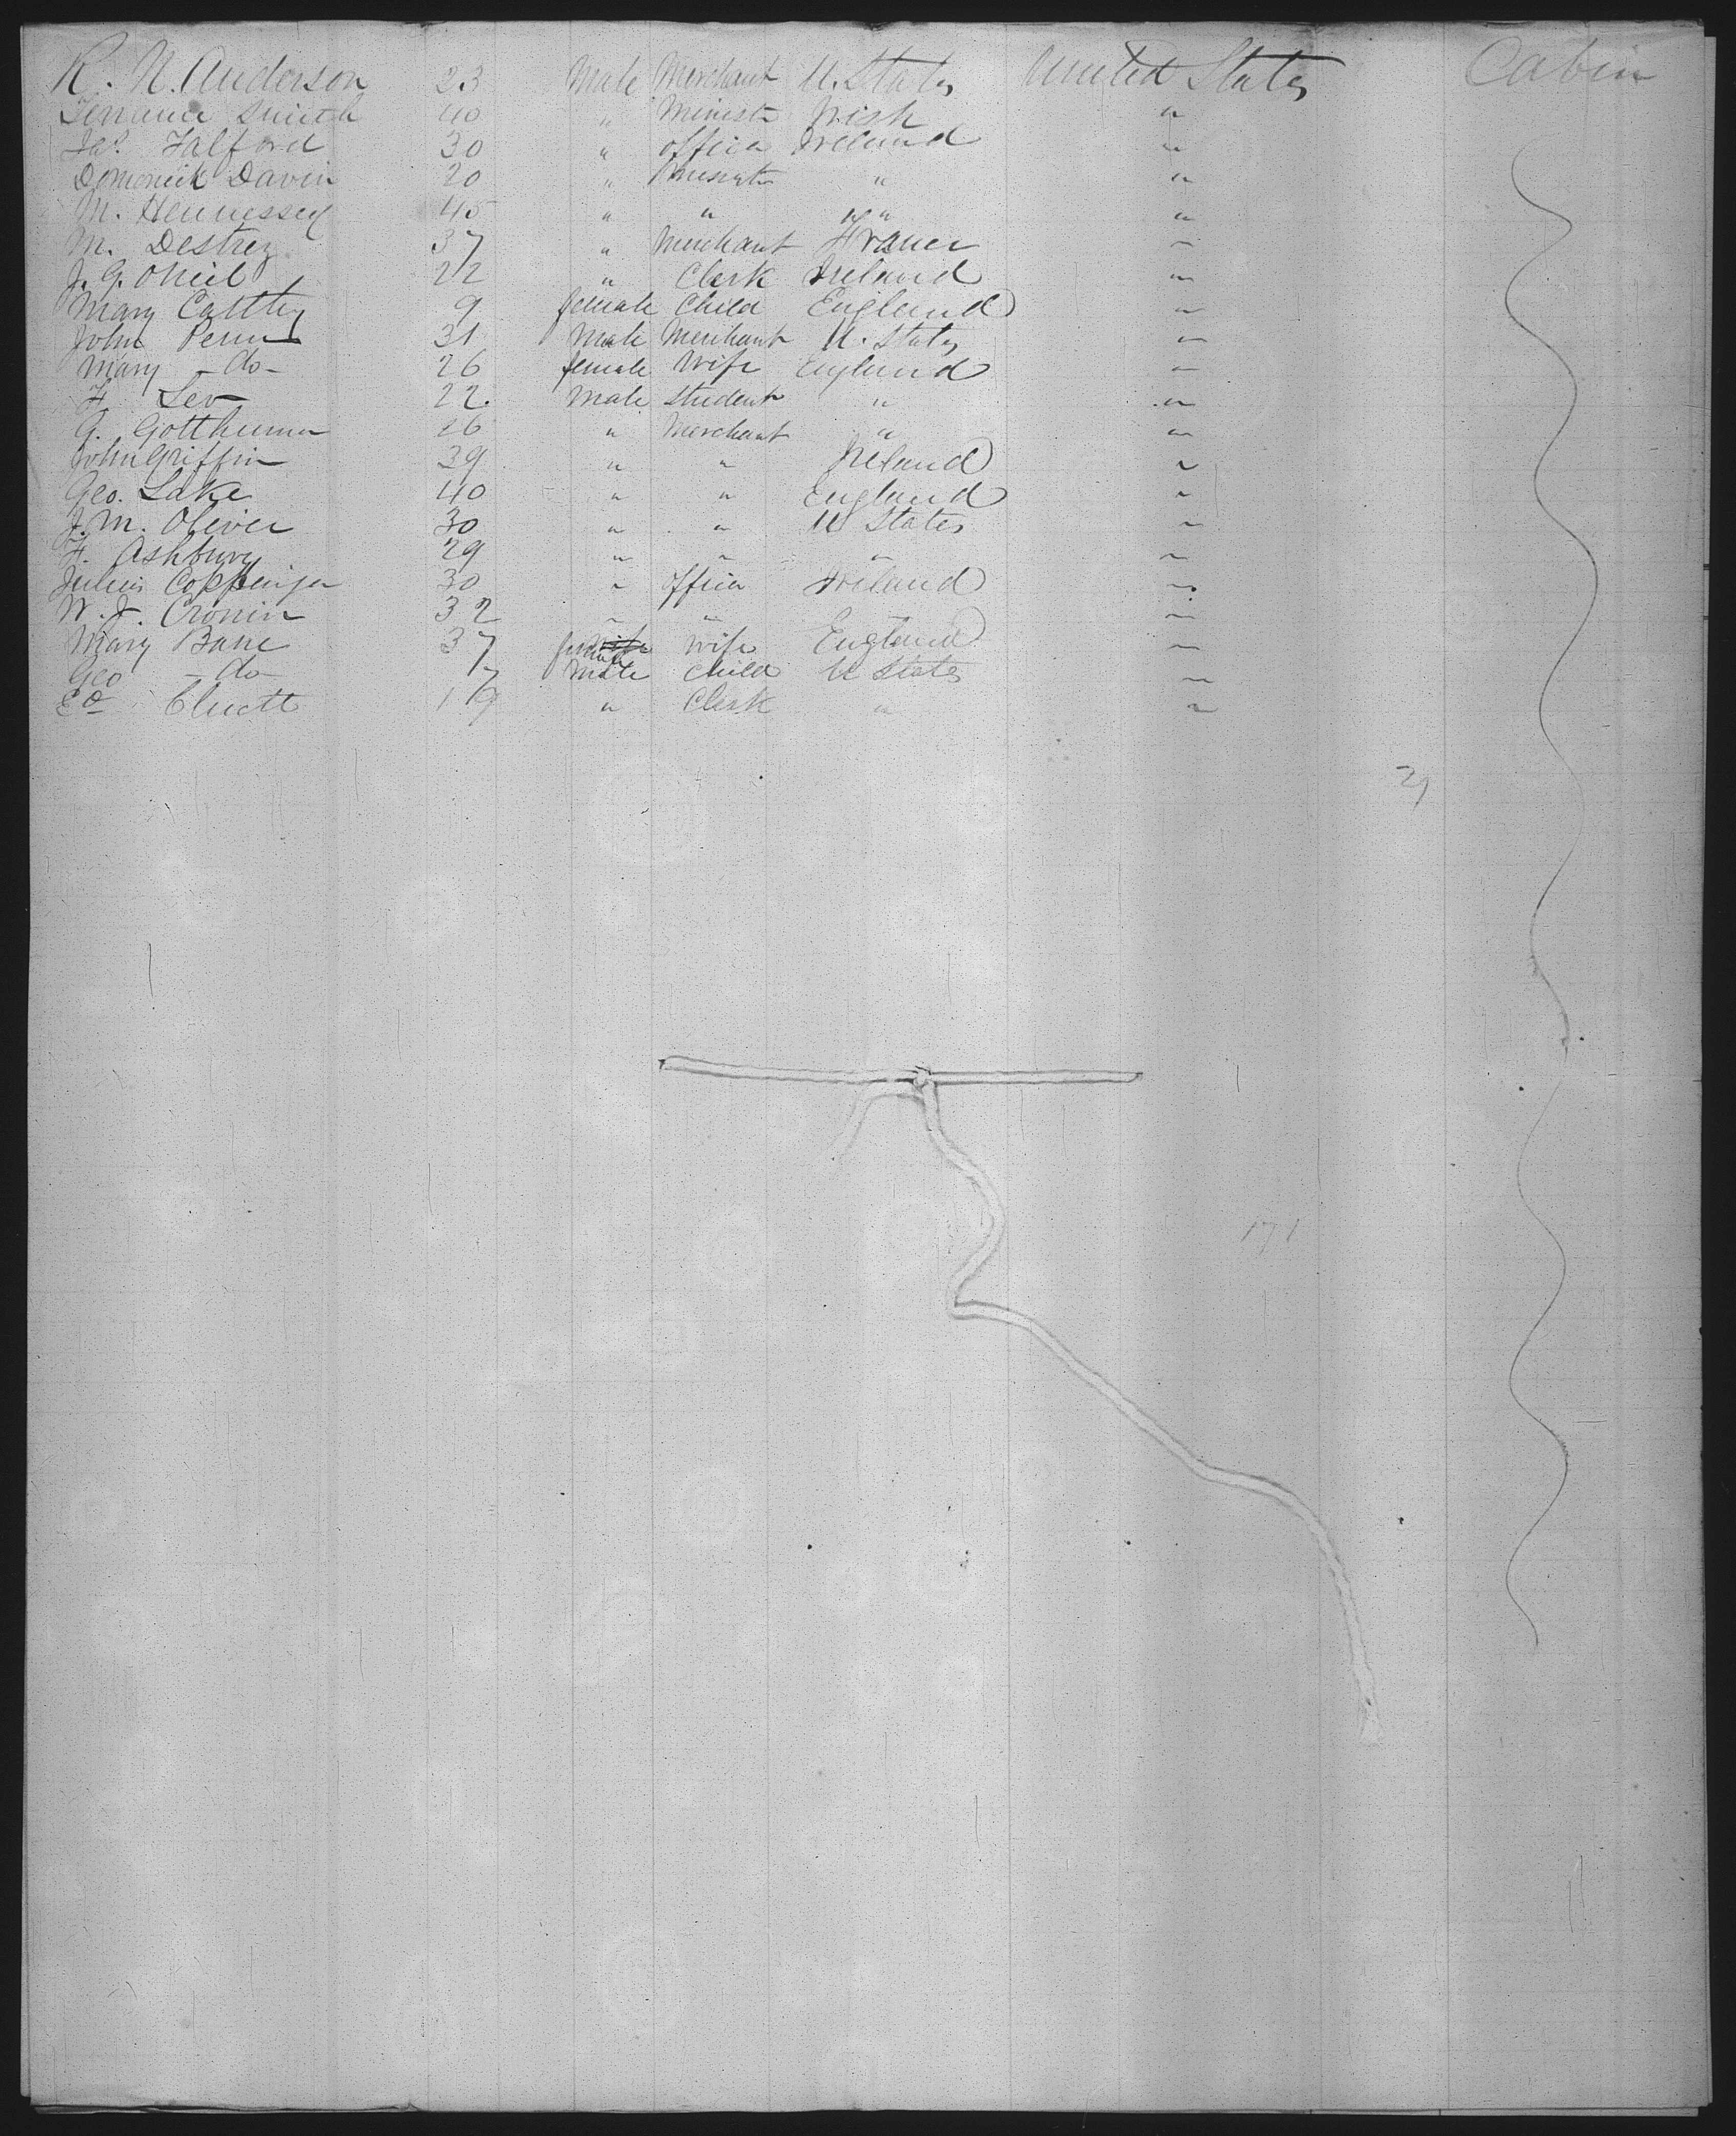 R. N. Anderson 23 Male Merchant U. States United States Cabin
Terrance Smith 40 " Minister Irish "
Jas. Halford 30 " Officer Ireland "
Domenick Davin 20 " " "
M. Hennessey 45 " " " "
M. Destrez 37 " Merchant France "
J. G. ONeil 22 " Clerk Ireland "
Mary 9 female Child England "
John 31 Male Merchant U. States "
Mary - do - 26 female Wife England "
F. Lev 22 Male Student " "
G. 26 " Merchant " "
John Griffin 39 " " Ireland "
Geo. Lake 40 " " England "
J. M. Oliver 30 " " U States "
F. Ashbury 29 " " " "
Julius Coppinger 30 " Officer Ireland "
W. J. Cronin 32 " " "
Mary Bane 37 female Wife England "
Geo - do - 7 Male Child U States "
Ed Cluett 19 " Clerk " "
21
171